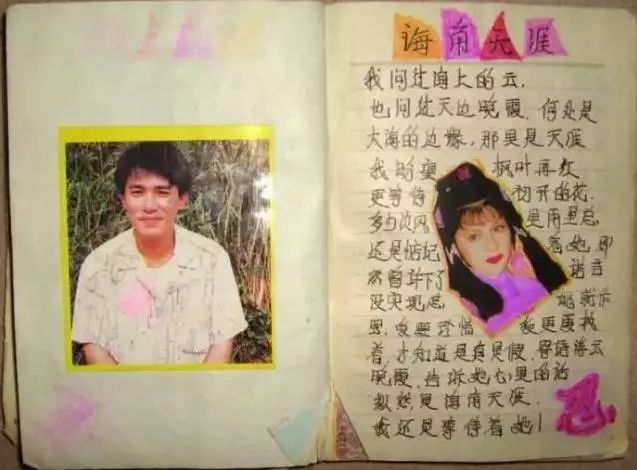 诲角天涯
我问过海上的云，
也问过天边晚霞，何处是
大海的边缘，那里是天涯
我盼望 枫叶再红
更等待 初开的花，
多少次风 里雨里总
还是惦记 着她，即
然曾许下了 诺言
没实现
我更要找
着，才知道是真是假，寄语浮云
晚霞，告诉她心里的话
纵然是海角天涯，
我还是等待着她！